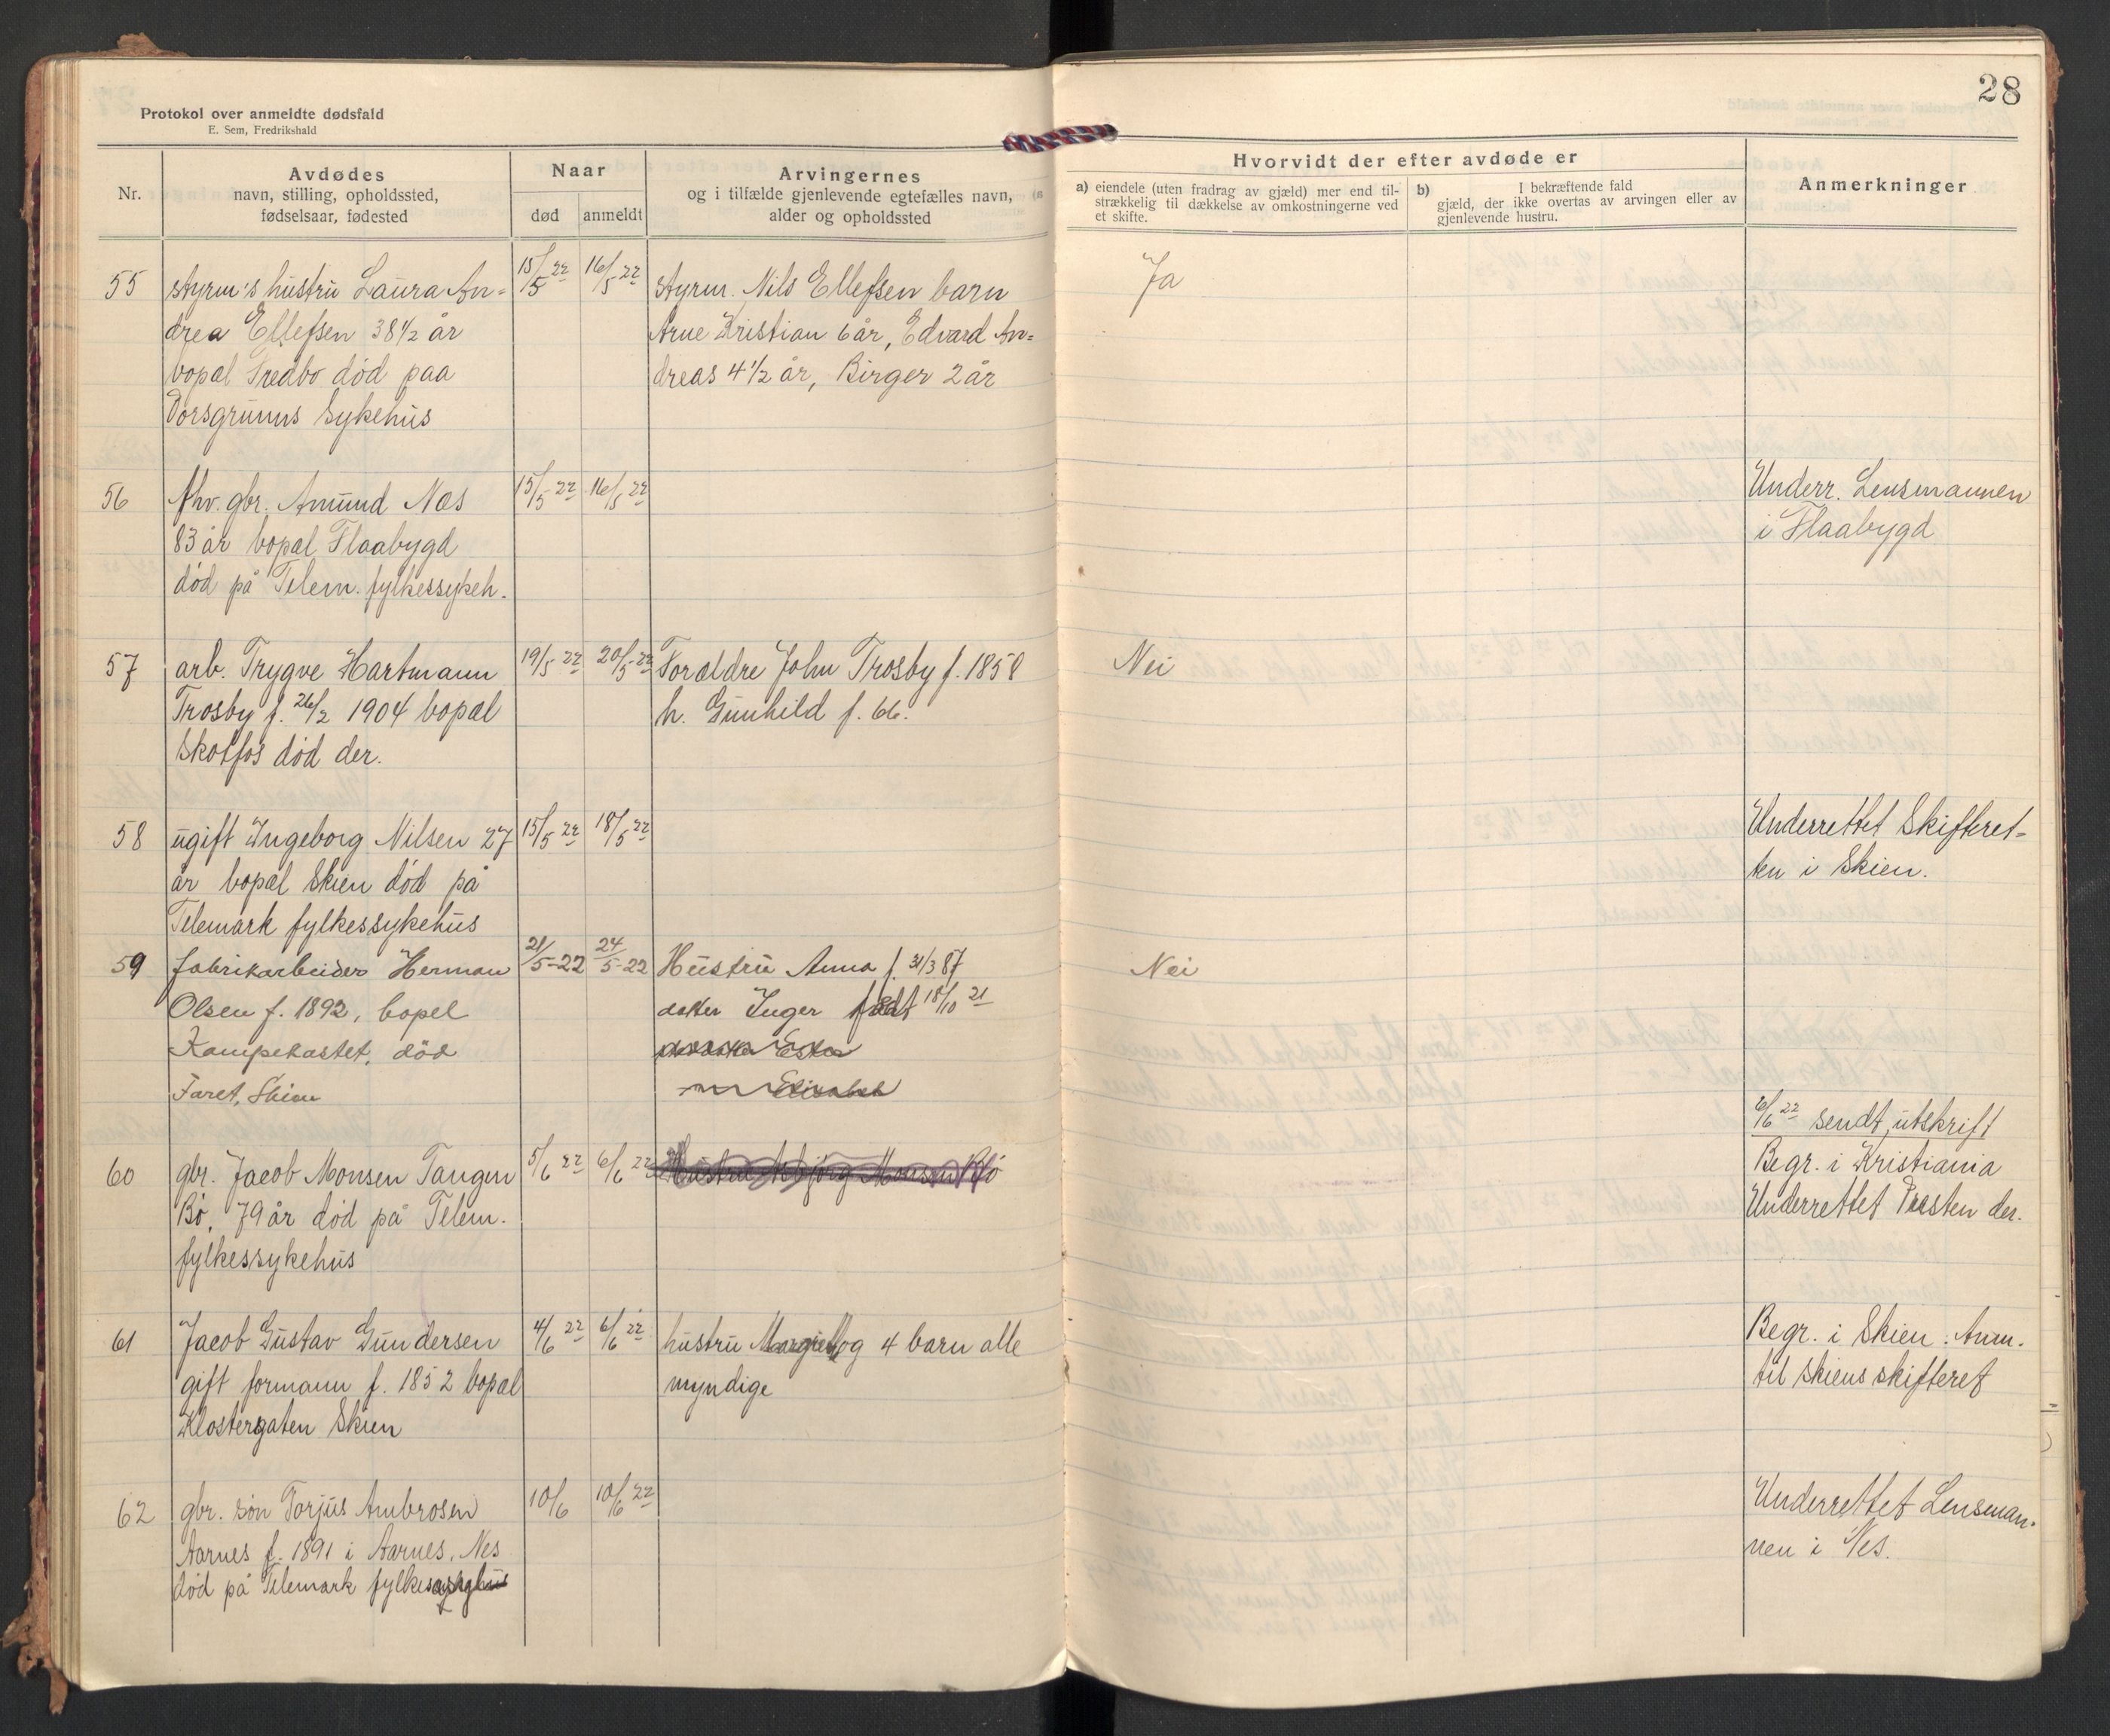 28
Protokol over anmeldte dødsfald
E. Sem, Fredrikshald
Nr.
Avdødes
navn, stilling, opholdssted,
fødselsaar, fødested
Naar
død
anmeldt
Arvingernes
og i tilfælde gjenlevende egtefælles navn,
alder og opholdssted
Hvorvidt der efter avdøde er
a) eiendele (uten fradrag av gjæld) mer end til-
strækkelig til dækkelse av omkostningerne ved
et skifte.
b) I bekræftende fald
gjæld, der ikke overtas av arvingen eller av
gjenlevende hustru.
Anmerkninger
55 styrm's hustru Laura An= 15/5 22 16/5 22 styrm. Nils Ellefsen barn Ja
drea Ellefsen 38 1/2 år Arne Kristian 6 år, Edvard An=
bopæl Tredbo død paa dreas 4 1/2 år, Birger 2 år
Porsgrunns Sykehus
56 fhv. gbr. Amund Næs 15/5 22 16/5 22 Underr. Lensmannen
83 år bopæl Flaabygd i Flaabygd
død på Telem. fylkessykeh.
57 arb. Trygve Hartmann 19/5 22 20/5 22 Forældre John Trosby f. 1858 Nei
Trosby f. 26/2 1904 bopæl h. Gunhild f. 66.
Skotfos død der.
58 ugift Ingeborg Nilsen 27 15/5 22 18/5 22 Underrettet Skifteret-
år bopæl Skien død på ten i Skien.
Telemark fylkessykehus
59 fabrikarbeider Herman 21/5-22 24/5-22 Hustru Anna f. 31/3 87 Nei
Olsen f. 1892, bopel datter Inger født 18/10 21
Kampekastet, död Ester
Faret, Skien Elisabeth
6/6 22 sendt utskrift
60 gbr. Jacob Monsen Tangen 5/6 22 6/6 22 Hustru Asbjørg Monsen Bø Begr. i Kristiania
Bø, 79 år død på Telem. Underrettet Presten der.
fylkessykehus
61 Jacob Gustav Gundersen 4/6 22 6/6 22 hustru og 4 barn alle Begr. i Skien. Anm.
gift formann f. 1852 bopæl myndige til Skiens skifteret
Klostergaten Skien
62 gbr. søn Torjus Ambrosen 10/6 10/6 22 Underrettet Lensman-
Aarnes f. 1891 i Aarnes, Nes nen i Nes.
død på Telemark fylkessykehus